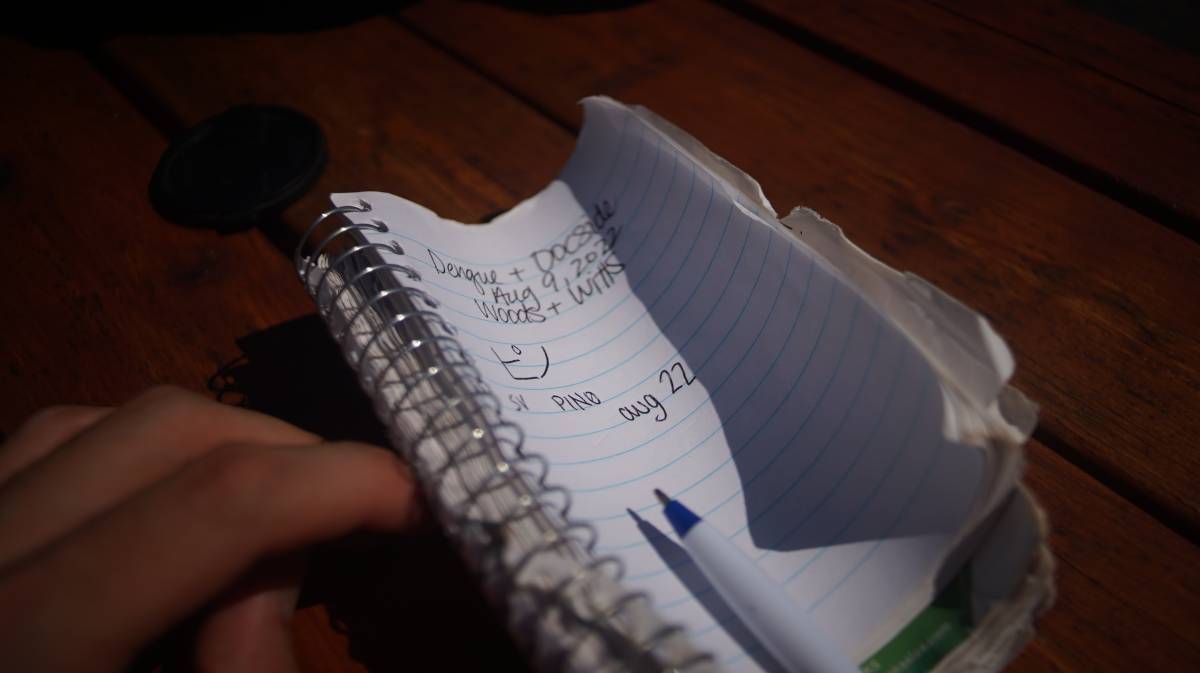 Dengue + Docside
Aug 9, 2022
Woods + Witts
SV PINO aug 22